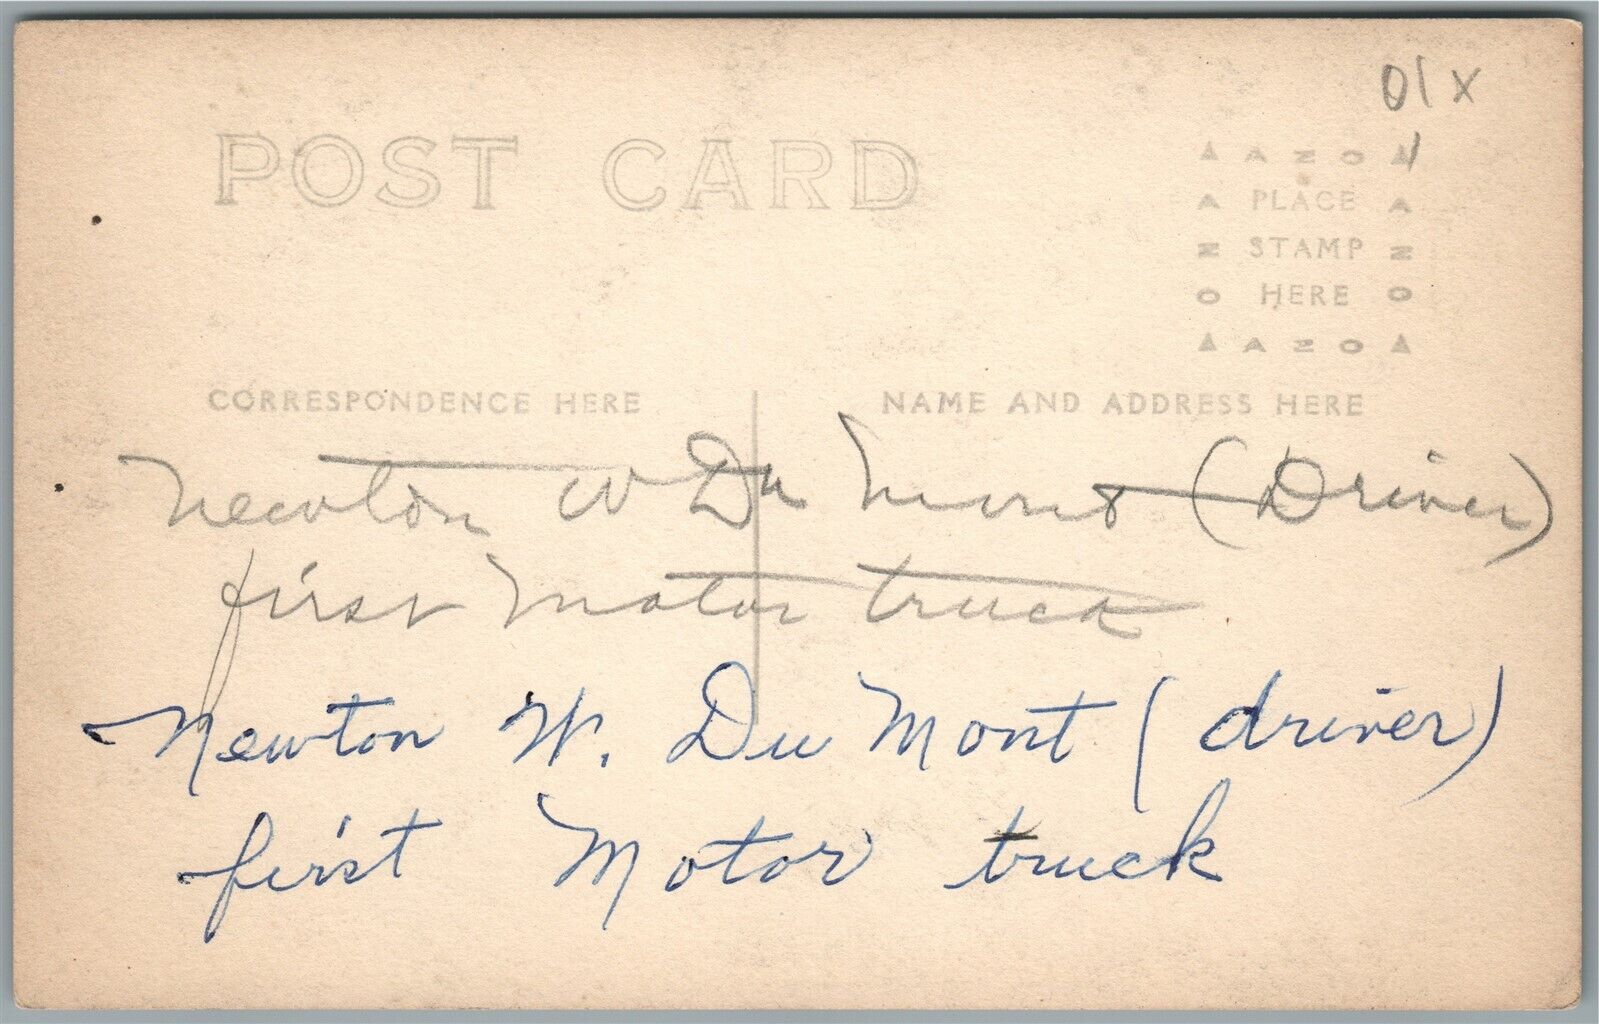 01 x
POST CARD
▲ A Z O ▲
A PLACE A
N STAMP N
O HERE O
▲ A Z O ▲
CORRESPONDENCE HERE
NAME AND ADDRESS HERE
Newton W Du Mont (Driver)
first Motor truck
Newton W. Du Mont (driver)
first Motor truck